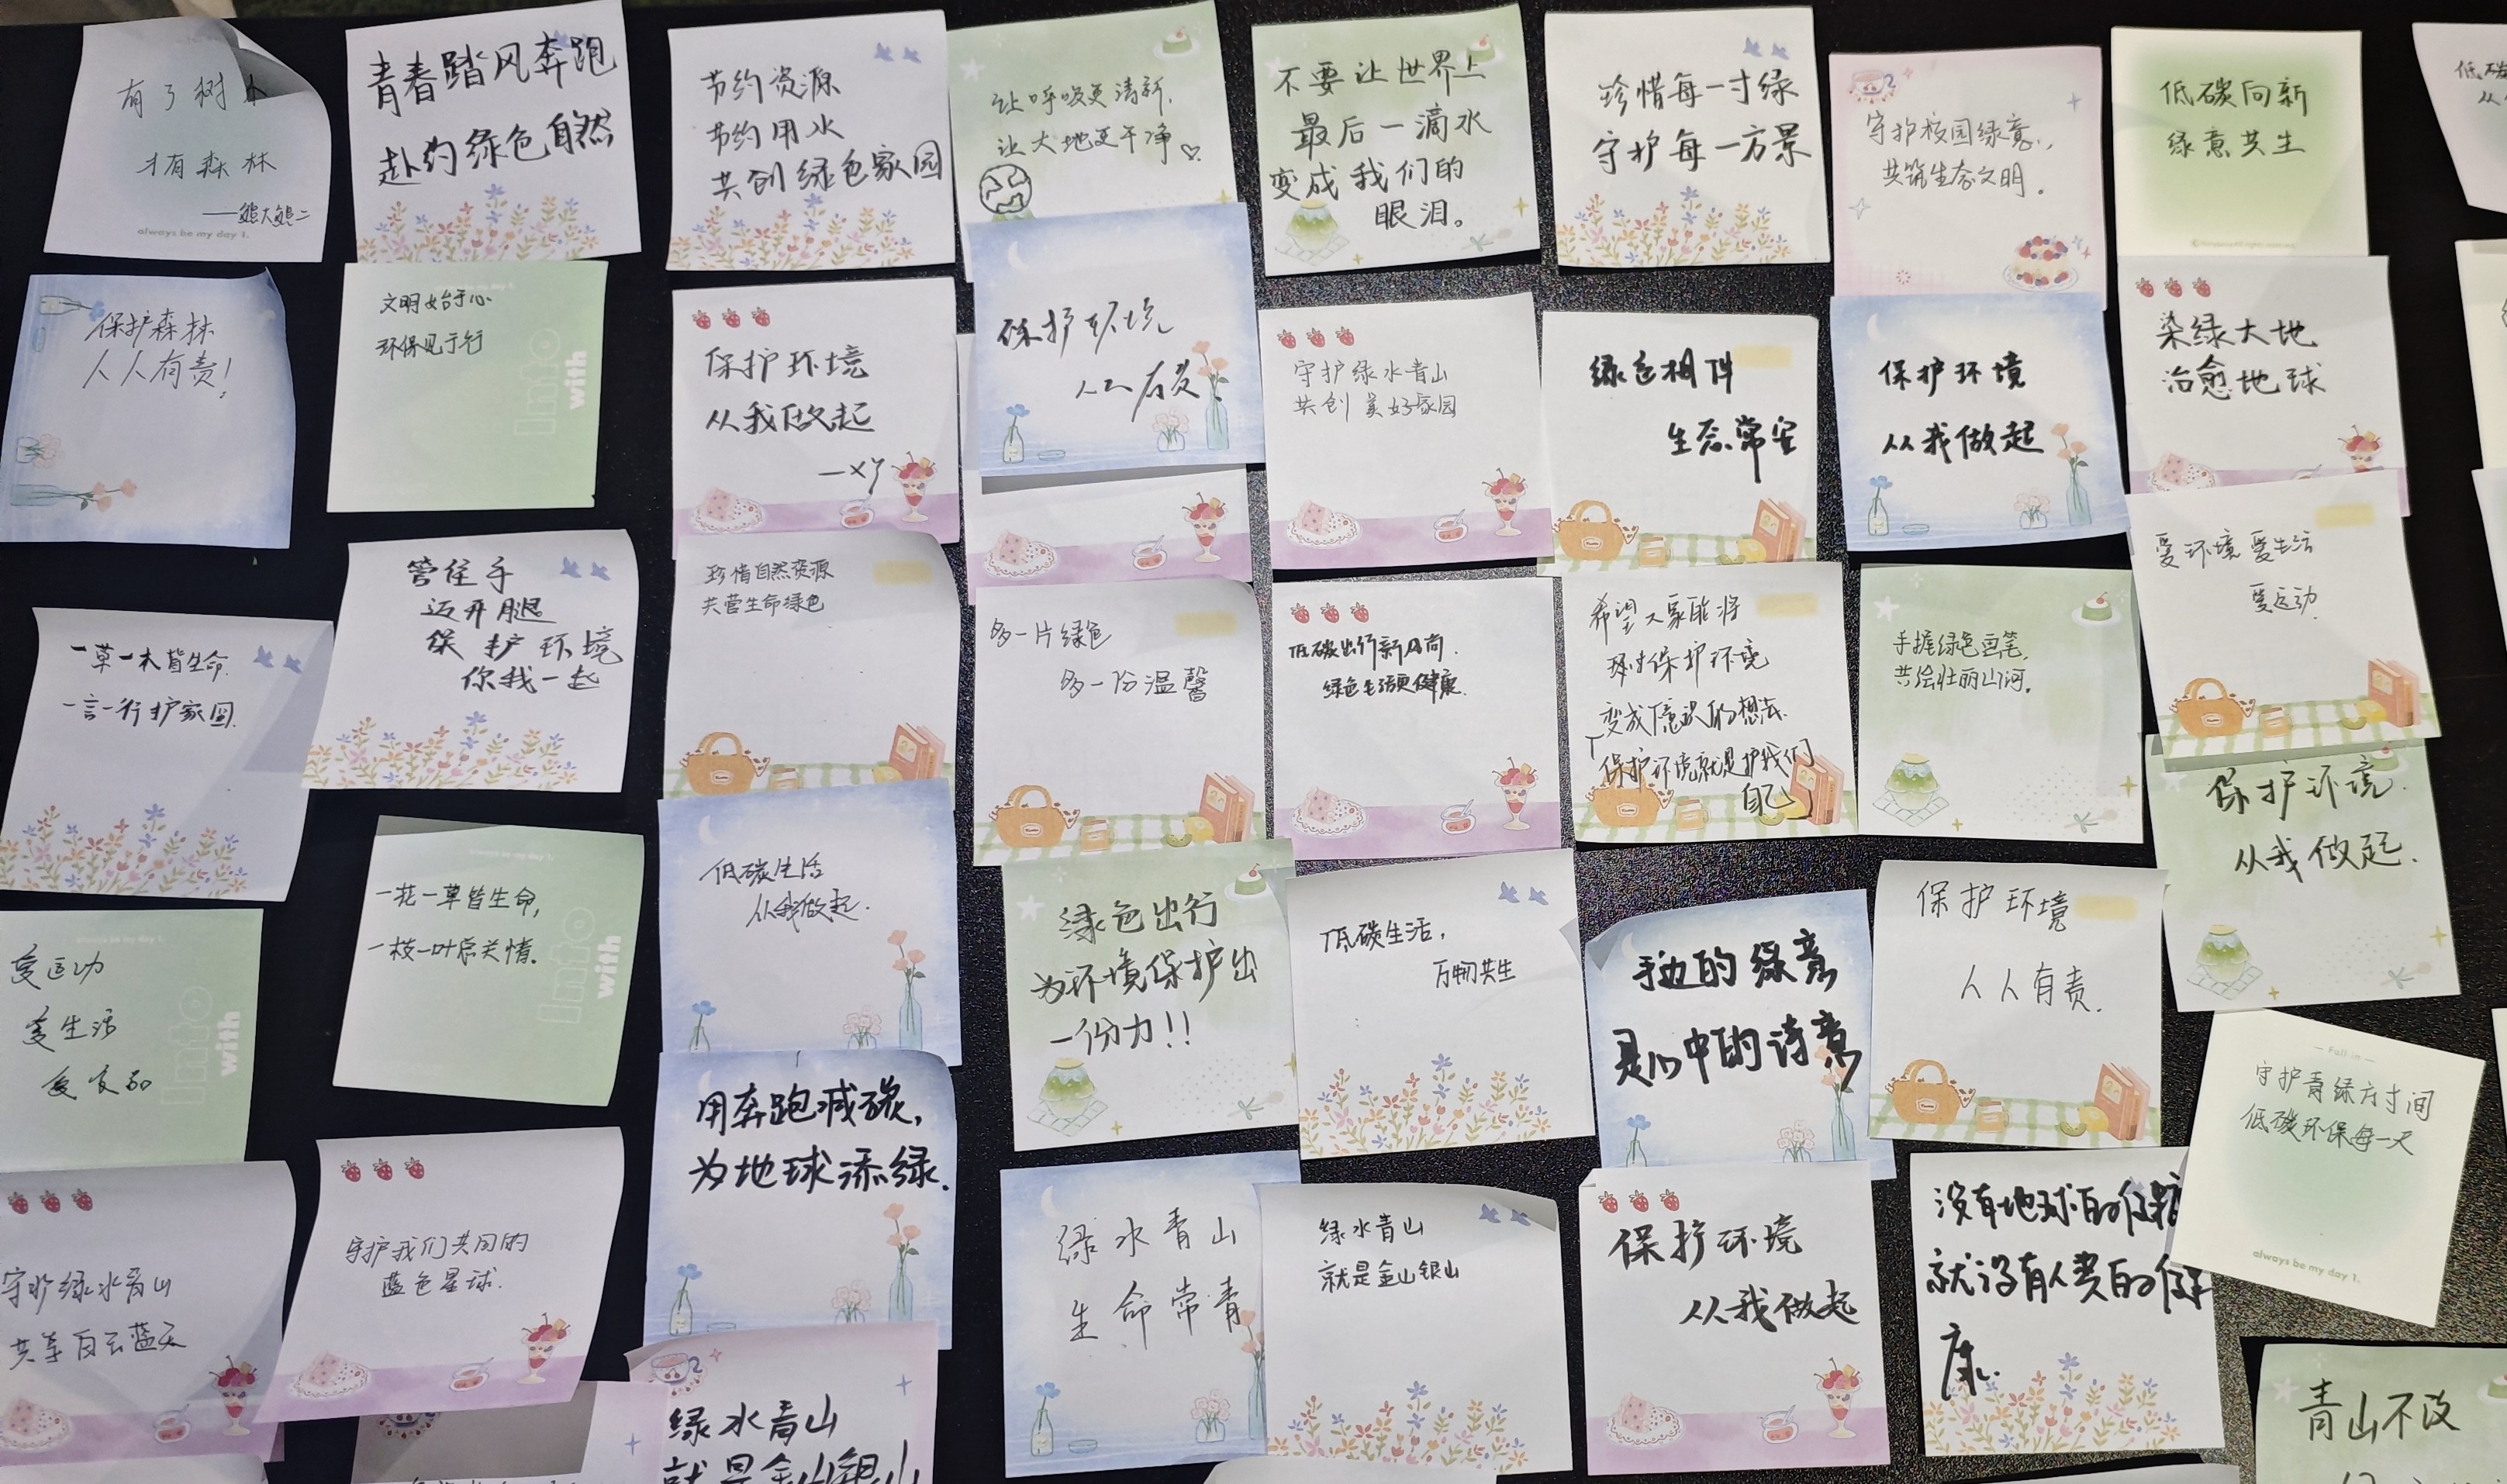 有了树木
才有森林
——熊大熊二
always be my day 1.
青春踏风奔跑
赴约绿色自然
节约资源
节约用水
共创绿色家园
让呼吸更清新,
让大地更干净
不要让世界上
最后一滴水
变成我们的
眼泪。
珍惜每一寸绿
守护每一方景
守护校园绿意,
共筑生态文明.
低碳向新
绿意共生
低碳
保护森林
人人有责!
文明始于心
环保见于行
Into
with
保护环境
从我做起
保护环境
人人有责
守护绿水青山
共创美好家园
绿色相伴
生态常安
保护环境
从我做起
染绿大地
治愈地球
一草一木皆生命
一言一行护家园.
管住手
迈开腿
保护环境
你我一起
珍惜自然资源
共营生命绿色
多一片绿色
多一份温馨
低碳出行新风尚.
绿色生活更健康.
希望大家能将
保护环境
变成 的想法.
保护环境就是护我们
自己
手握绿色画笔,
共绘壮丽山河.
爱环境 爱生活
爱运动
爱运动
爱生活
always be my day 1.
一花一草皆生命,
一枝一叶总关情.
Into
with
Into
with
低碳生活
从我做起.
绿色出行
为环境保护出
一份力!!
低碳生活,
万物共生
手边的绿意
是心中的诗意
保护环境
人人有责.
保护环境.
从我做起.
守护绿水青山
共享白云蓝天
守护我们共同的
蓝色星球.
用奔跑减碳,
为地球添绿.
绿水青山
生命常青
绿水青山
就是金山银山
保护环境
从我做起
没有地球的健康
就没有人类的健
康.
— Fall in —
守护青绿方寸间
低碳环保每一天
always be my day 1.
绿水青山
就是金山银山
青山不改